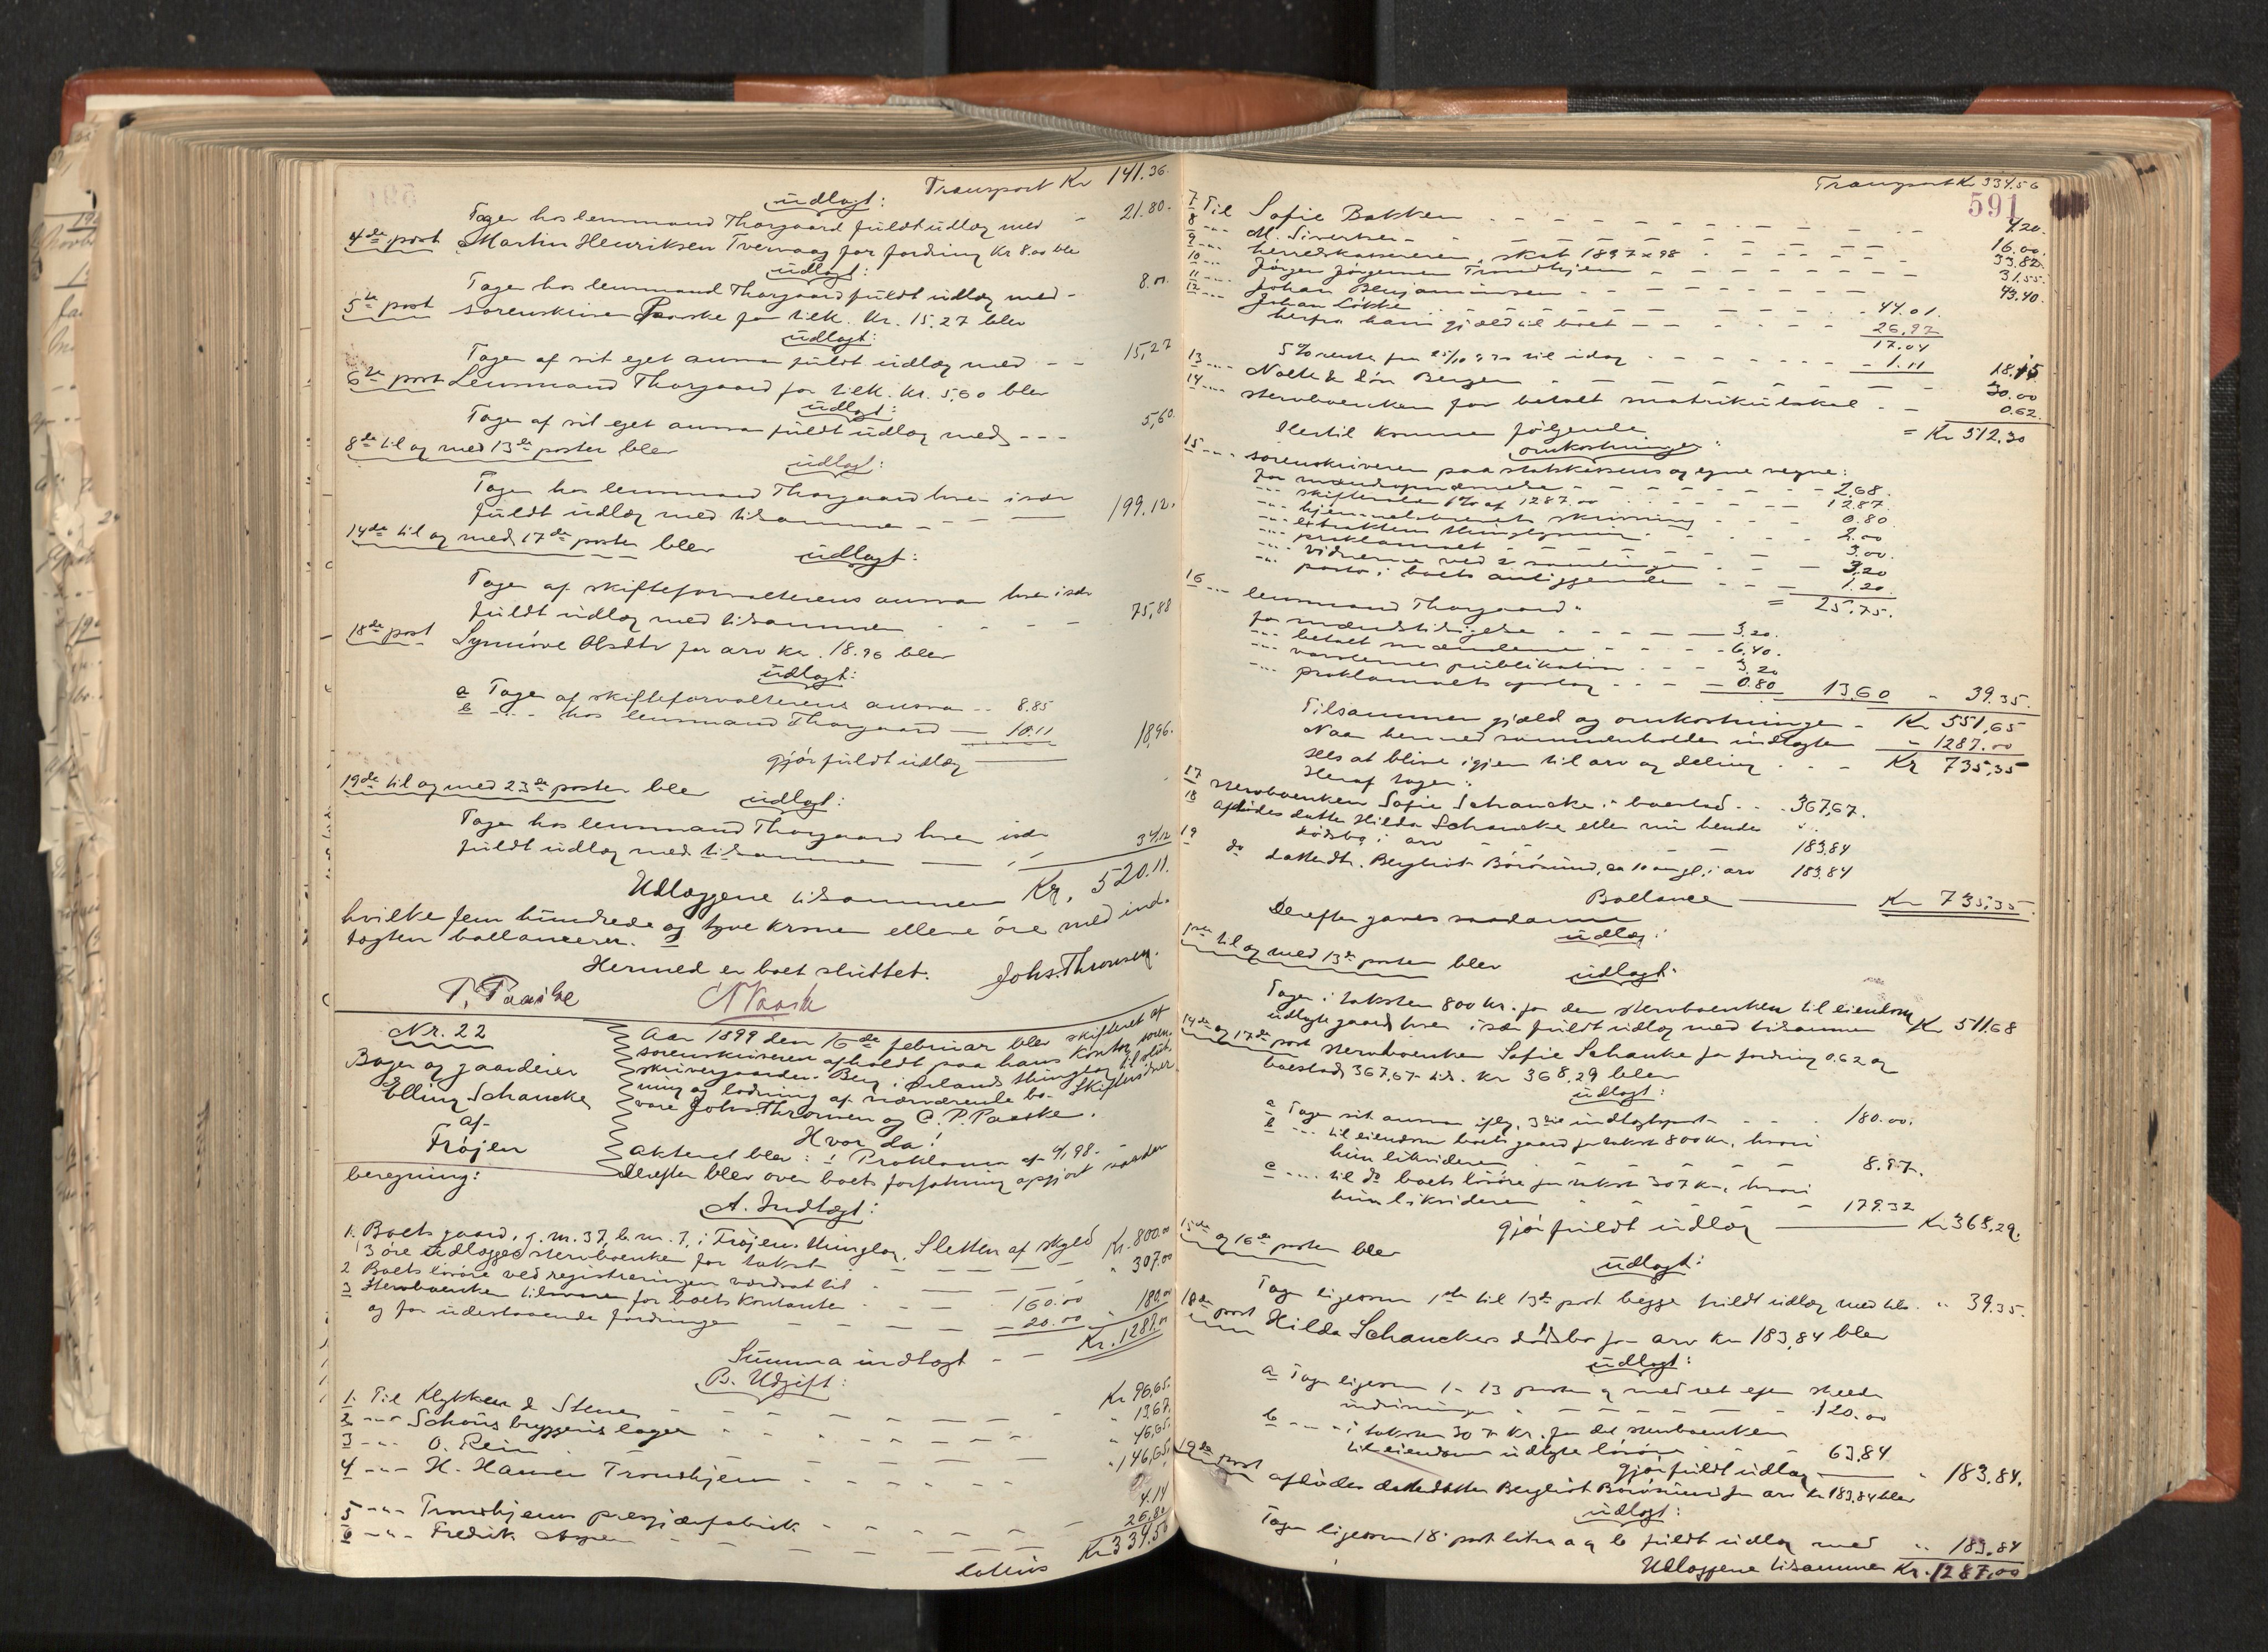 Transport Kr 141.36.
udlagt:
Tager hos lensmand Thorgaard fuldt udlæg med - 21.80.
4de post Martin Henriksen Tvervaag for fordring Kr 8.00 blev
udlagt:
Tager hos lensmand Thorgaard fuldt udlæg med - 8.00.
5te post sorenskriver Paaske for tilk. Kr. 15.27 blev
udlagt:
Tager af sit eget ansvar fuldt udlæg med - - 15,27
6te post Lensmand Thorgaard for tilk. Kr. 5,60 blev
udlagt:
Tager af sit eget ansvar fuldt udlæg med - - - 5,60.
8de til og med 13de poster blev
udlagt:
Tager hos lensmand Thorgaard hver især
fuldt udlæg med tilsammen - - - 199.12.
14de til og med 17de poster blev
udlagt:
Tager af skifteforvalterens ansvar hver især
fuldt udlæg med tilsammen - - - 75,88
18de post Synnöve Olsdtr for arv Kr. 18.96 blev
udlagt:
a Tager af skifteforvalterens ansvar - - 8.85
b - - - hos lensmand Thorgaard - 10.11
gjör fuldt udlæg 18,96.
19de til og med 23de poster blev
udlagt:
Tager hos lensmand Thorgaard hver især
fuldt udlæg med tilsammen - 34,12
Udlæggene tilsammen Kr. 520.11.
hvilke fem hundrede og tyve kroner elleve öre med ind-
tægten ballancerer.
Hermed er boet sluttet.
Johs. Thronsen.
P. Paaske
Nr. 22
Bager og gaardeier
Elling Schancke
af
Fröjen
Aar 1899 den 16de februar blev skifteret af
sorenskriveren afholdt paa hans kontor soren-
skrivergaarden Berg i Ørlands thinglag til slut-
ning og lodning af nærværende bo. Skiftevidner
vare Johs. Thronsen og C. P. Paaske.
Hvor da!
Akteret blev: 1 Proklama af 98.
Derefter blev over boets forfatning opgjort saadan
beregning:
A. Indtægt:
1. Boets gaard, g. nr. 37, b. nr. 7, i Fröjens thinglag, Sletten af skyld
3 öre udlægges sterboenken for takst - - - Kr. 800.00
2 Boets lösöre ved registreringen vurderet til - - " 307.00
3 Sterboenken tilsvarer for boets kontanter - - 160.00
og for udestaaende fordringer - - 20.00 " 180.00
Summa indtægt - - Kr. 1287.00
B. Udgift:
1. Til Klykken & Stene - - - Kr. 96,65.
2. - " - Schöns bryggeris lager - - - " 13,67.
3 - " - O. Rein - - - " 46,65.
4 - " - H. Hansen Trondhjem - - - " 146,65.
5 - " - Trondhjems presgjærfabrik - - - 4.14
6 - " - Fredrik Aspen - - - 26,80
latus Kr 334.56
Transport Kr 334.56
591
7 Til Sofie Bakken - - - 4.20.
8 - - - M. Sivertsen - - - 16.00.
9 - - - herredskassereren, skat 1897 x 98 - - - 33.82.
10 - - - Jörgen Jörgensen Trondhjem - - - 31.55.
11 - - - Johan Benjaminsen - - - 43.40.
12 - - - Johan Lökke - - - 44.01.
herfra hans gjæld til boet - - - 26,97
17.04
5% rente fra 25/10 97 til idag - - - 1.11 18.15
13 - - - Nolte & Sön Bergen - - - 30.00
14 - - - sterboenken for betalt matrikulskat - - 0.62.
= Kr 512.30
Hertil kommer følgende
omkostninger:
15 - - - sorenskriveren paa statskassens og egne vegne:
for mændsopnævnelse - - - 2,68.
- - - skifteralen 1% af 1287.00 - - - 12.87.
- - - hjemmelsbrevets skrivning - - - 0.80.
- - - extraktens thinglysning - - - 2.00
- - - proklamaet - - - 3.00.
- - - vidnerne ved 2 samlinger - - - 3,20
- - - porto i boets anliggender - - - 1.20.
= 25,75.
16 - - - lensmand Thorgaard:
for mændstilsigelse - - - 3.20.
- - - betalt mændene - - - 6.40.
- - - varslernes publikation - - - 3.20
- - - proklamaets opslag - - - 0.80 13,60 " 39.35.
Tilsammen gjæld og omkostninger - Kr 551,65
Naar hermed sammenholdes indtægten " 1287.00
sees at blive igjen til arv og deling - - - Kr 735,35
Heraf tager:
17 sterboenken Sofie Schancke i boeslod - - 367,67.
18 aflødes datter Hilda Schancke eller nu hendes
dödsbo i arv - - - 183,84
19 do datterdtr. Bergliot Börösund, ca 10 aar gl. i arv 183,84
Ballance Kr 735,35.
Derefter gaves saadanne
udlæg:
1ste til og med 13de poster blev
udlagt:
Tager i taksten 800 kr. for den sterboenken til eiendom
udlagte gaard hver især fuldt udlæg med tilsammen Kr 511.68
14de og 17de post sterboenken Sofie Schanke for fordring 0.62 og
boeslod 367,67 tils. Kr 368,29 blev
udlagt:
a Tager sit ansvar iflg. 3die indtægtspost - - - 180.00.
b - - - til eiendom boets gaard for takst 800 kr., hvori
hun likviderer - - - 8.97.
c - - - til do boets lösöre for takst 307 kr., hvori
hun likviderer - - - 179.32
gjör fuldt udlæg Kr 368,29.
15de og 16de poster blev
udlagt:
Tager ligesom 1ste til 13de post begge fuldt udlæg med tils. " 39.35.
18de post Hilda Schanckes dödsbo for arv Kr 183,84 blev
udlagt:
a Tager ligesom 1 - 13 poster og med ret efter skeede
- - - 120.00
b - - - i taksten 307 Kr. for det sterboenken
til eiendom udlagte lösöre - - 63.84
gjör fuldt udlæg " 183,84.
19de post aflødes datterdatter Bergliot Börösund for arv Kr 183,84 blev
udlagt:
Tager ligesom 18 post litra a og b fuldt udlæg med " 183.84
Udlæggene tilsammen Kr. 1287,00